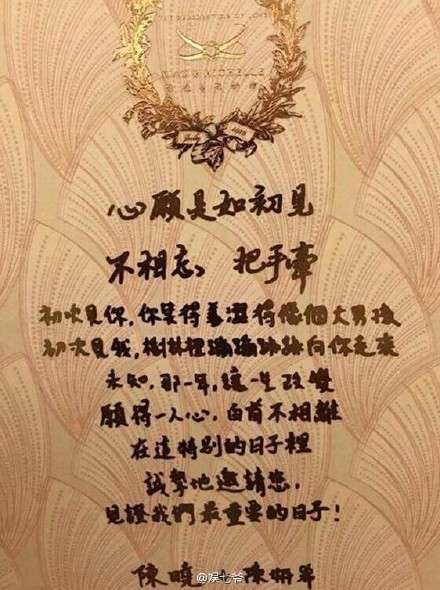 & MICHELLE
2016
心願是如初見
不相忘, 把手牽
初次見你,你笑得羞澀得像個大男孩
初次見我,樹林裡蹦蹦跳跳向你走來
未知,那一年,讓一生改變
願得一人心,白首不相離
在這特別的日子裡
誠摯地邀請您,
見證我們最重要的日子!
陳曉 陳妍希
@娱七爷